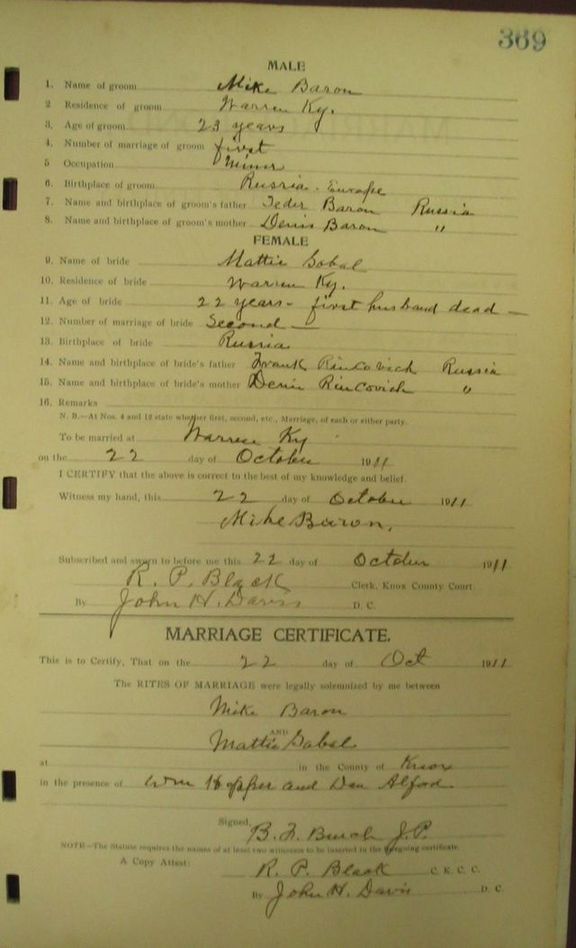 369
MALE
1. Name of groom Mike Baron
2 Residence of groom Warren Ky.
3. Age of groom 23 years
4. Number of marriage of groom first
5 Occupation Minor
6. Birthplace of groom Russia - Europe
7. Name and birthplace of groom's father Baron Russia
8. Name and birthplace of groom's mother Denis Baron "
FEMALE
9. Name of bride Mattie Gobal
10. Residence of bride Warren Ky.
11. Age of bride 22 years - first husband dead -
12. Number of marriage of bride Second -
13. Birthplace of bride Russia
14. Name and birthplace of bride's father Frank Rincovich Russia
15. Name and birthplace of bride's mother Denis Rincovich "
16. Remarks
N. B.—At Nos. 4 and 12 state whether first, second, etc., Marriage, of each or either party.
To be married at Warren Ky
on the 22 day of October 1911
I CERTIFY that the above is correct to the best of my knowledge and belief.
Witness my hand, this 22 day of October 1911
Mike Baron.
Subscribed and sworn to before me this 22 day of October 1911
R. P. Black Clerk, Knox County Court
By John H. Davis D. C.
MARRIAGE CERTIFICATE.
This is to Certify, That on the 22 day of Oct 1911
The RITES OF MARRIAGE were legally solemnized by me between
Mike Baron
AND
Mattie Gabal
at in the County of Knox
in the presence of Wm Hopper and Dan Alford
Signed, B. F. Burch J.P.
NOTE—The Statute requires the names of at least two witnesses to be inserted in the foregoing certificate.
A Copy Attest: R. P. Black C. K. C. C.
By John H. Davis D. C.